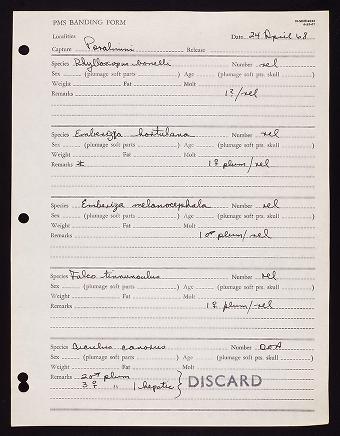 PMS BANDING FORM
Localities Date 24 April 68
Capture Paralimni Release
Species Phylloscopus bonelli Number rel
Sex (plumage soft parts) Age (plumage soft pts. skull)
Weight Fat Molt
Remarks 1?/rel
Species Emberiza hortulana Number rel
Sex (plumage soft parts) Age (plumage soft pts. skull)
Weight Fat Molt
Remarks 1♀ plum/rel
Species Emberiza melanocephala Number rel
Sex (plumage soft parts) Age (plumage soft pts. skull)
Weight Fat Molt
Remarks 1♂ plum/rel
Species Falco tinnunculus Number rel
Sex (plumage soft parts) Age (plumage soft pts. skull)
Weight Fat Molt
Remarks 1♀ plum/rel
Species Cuculus canorus Number DOA
Sex (plumage soft parts) Age (plumage soft pts. skull)
Weight Fat Molt
Remarks 2♂ plum
3♀ " 1 hepatic } DISCARD